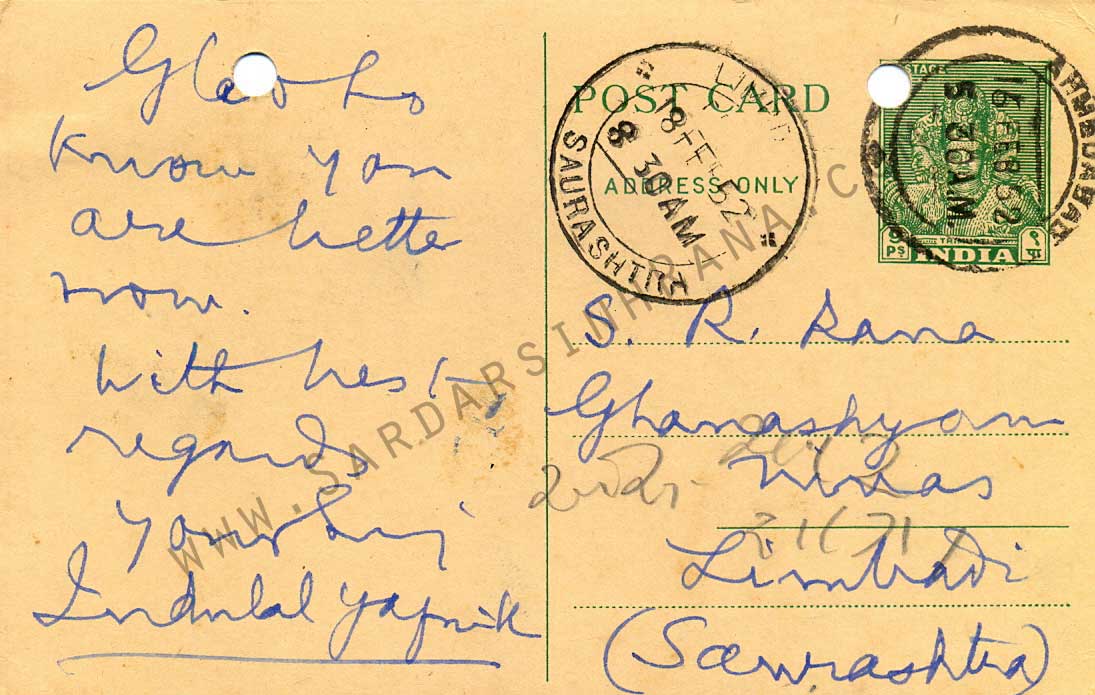 Glad to
know you
are better
now.
With best
regards
Yours
Indulal Yajnik
POST CARD
ADDRESS ONLY
S. R. Rana
Ghanashyam
Nivas
Limbadi
(Saurashtra)
SAURASHTRA
18 FEB 52
8 30 AM
AHMADABAD
16 FEB 52
5 30 AM
POSTAGE
TRIMURTI
9 Ps
INDIA
९ पा
WWW.SARDARSINHRANA.C